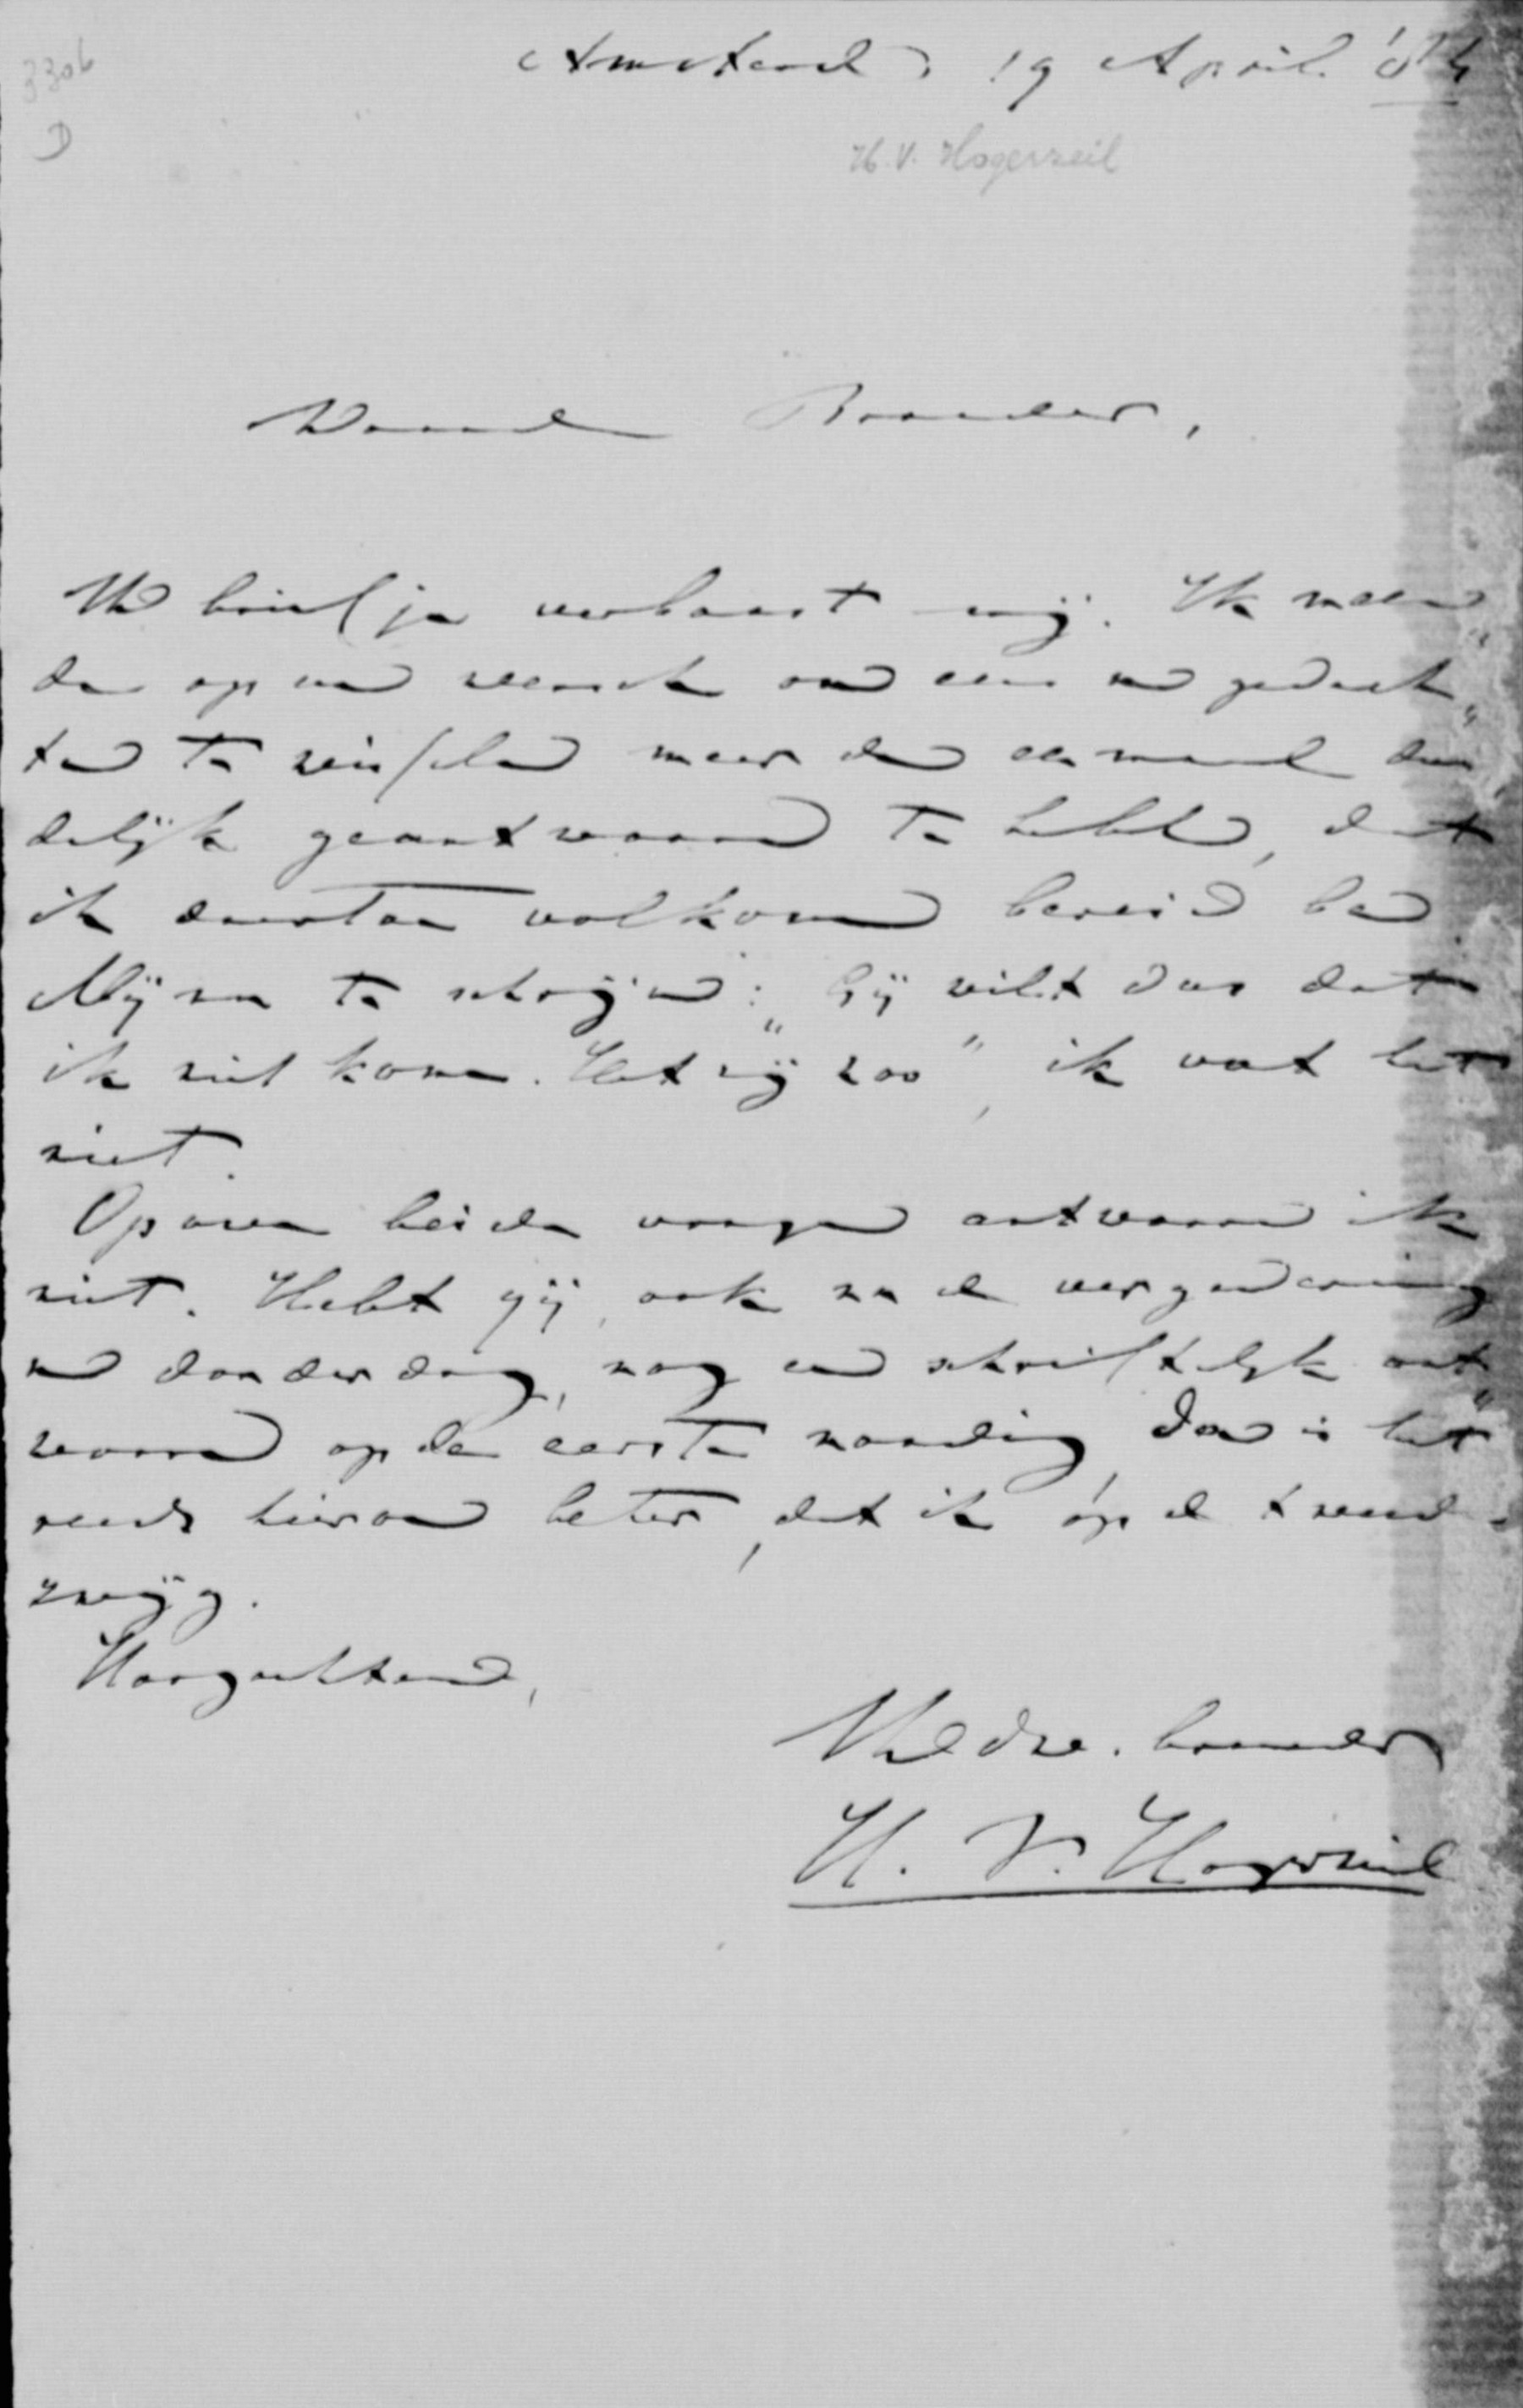 3306
D
Amsterd, 19 April '86
H.V. Hogerzeil
Waarde Broeder,
Uw briefje verbaast mij. Ik meen„
de op uw wensch om eens van gedach„
ten te wisselen meer dan eenmaal dui
delijk geantwoord te hebben, dat
ik daartoe volkomen bereid ben.
Mij nu te schrijven: „Gij wilt dus dat
ik niet kome. Het zij zoo", ik vat het
niet.
Op uwe beide vragen antwoord ik
niet. Hebt gij, ook na de vergadering
van donderdag, nog een schriftelijk ant„
woord op de eerste noodig, dan is het
reeds hierom beter, dat ik óp de tweede
zwijg.
Hoogachtend,
Uwdw. broeder
H. V. Hogerzeil